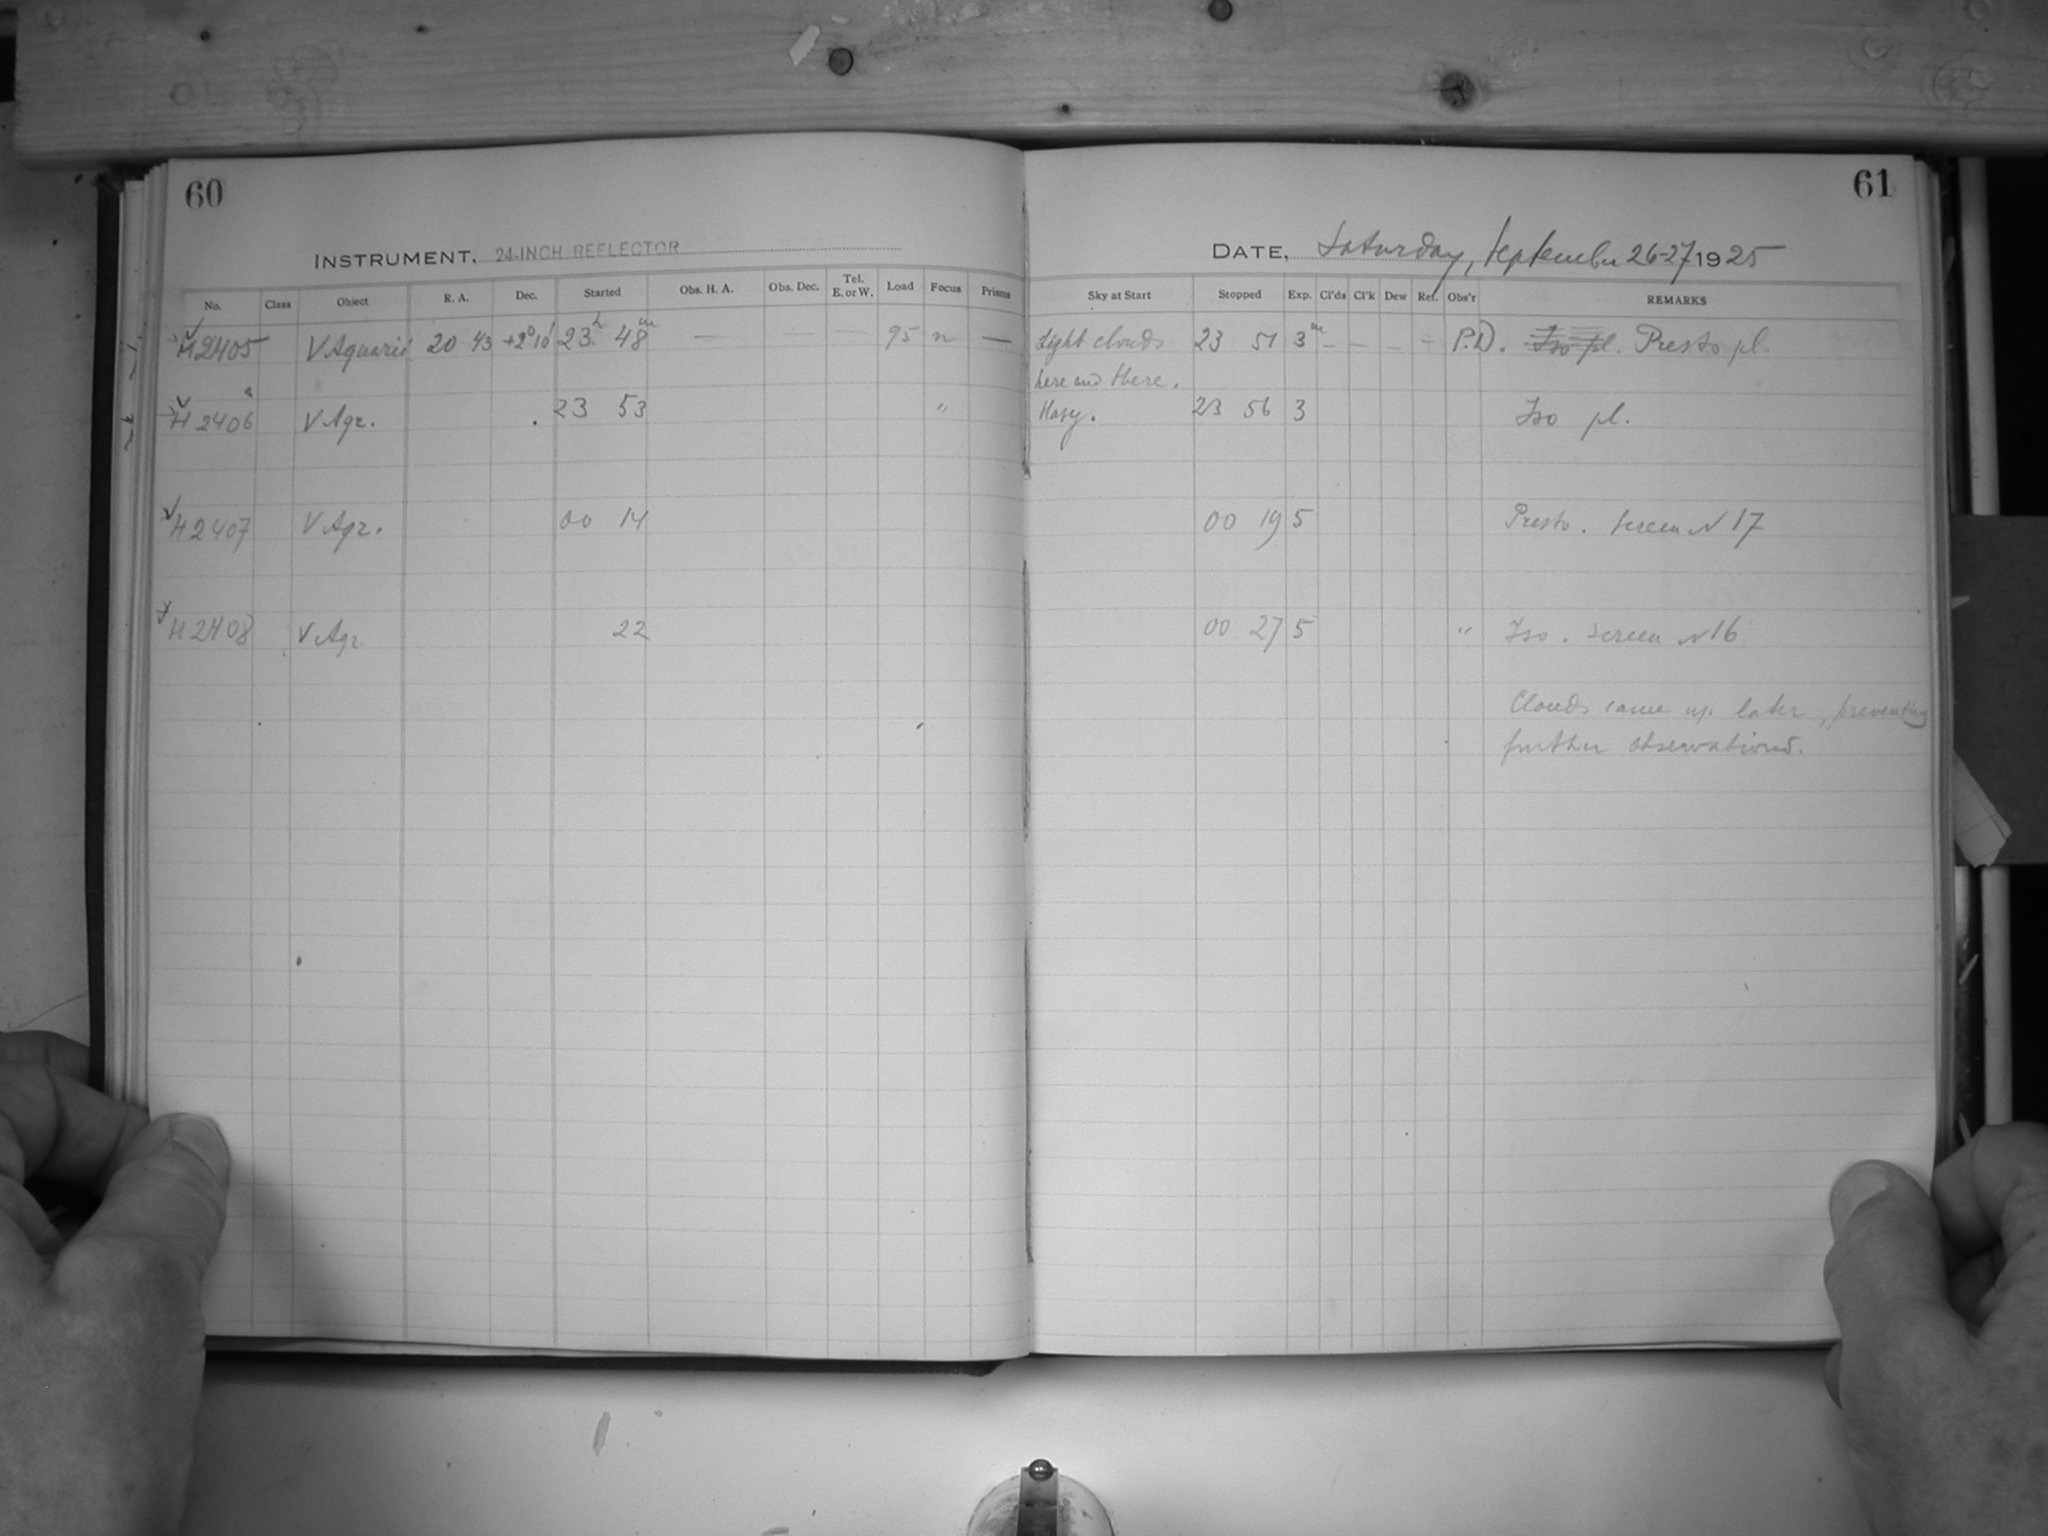 60
INSTRUMENT, 24-INCH REFLECTOR
No. Class Object R. A. Dec. Started Obs. H. A. Obs. Dec. Tel. E. or W. Load Focus Prisms
H 2405 V Aquarii 20 43 +2° 10' 23h 48m — — — 95 n —
H 2406 V Aqr. 23 53 "
H 2407 V Aqr. 00 14
H 2408 V Aqr. 22
61
DATE, Saturday, September 26-27 1925
Sky at Start Stopped Exp. Cl'ds Cl'k Dew Ref. Obs'r REMARKS
Light clouds 23 51 3m — — — — P.D. Iso pl. Presto pl.
here and there.
Hazy. 23 56 3 Iso pl.
00 19 5 Presto. Screen N 17
00 27 5 " Iso. Screen N 16
Clouds came up later, preventing
further observations.